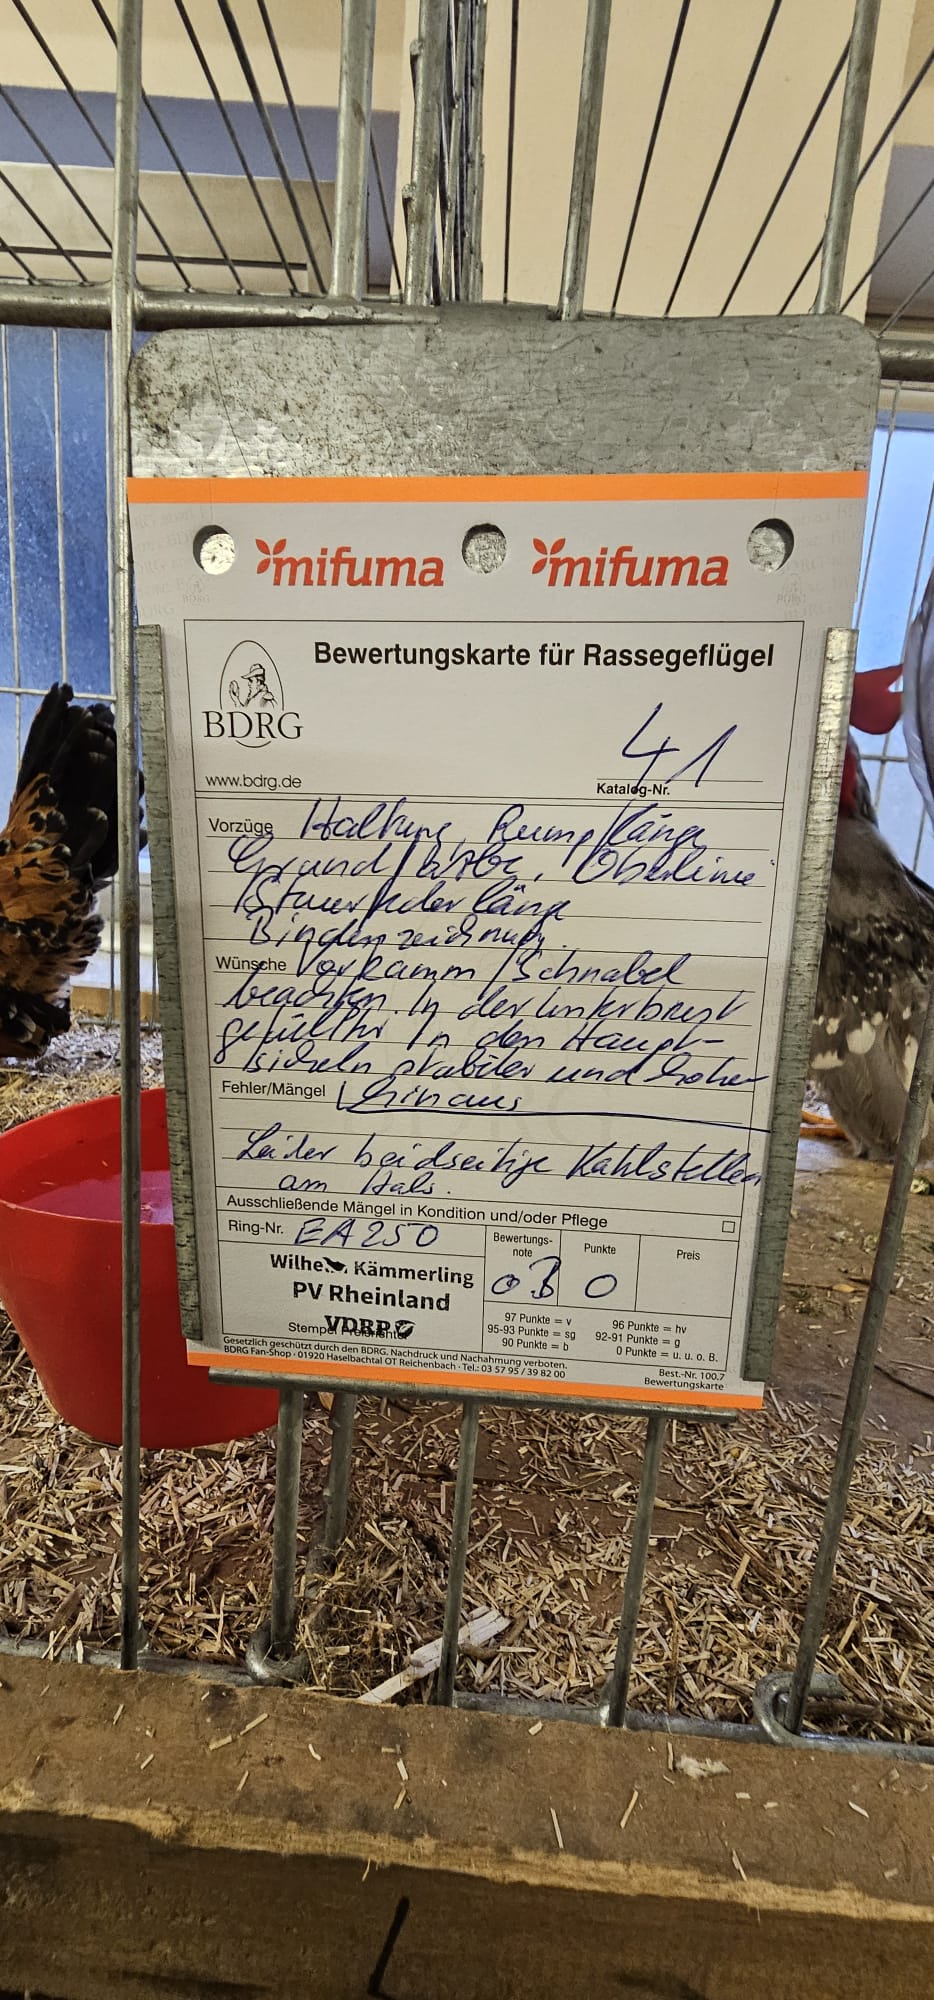 mifuma mifuma
Bewertungskarte für Rassegeflügel
BDRG
41
www.bdrg.de
Katalog-Nr.
Vorzüge Haltung, Rumpflänge
Grundfarbe, Oberlinie
Steuerfederlänge
Bindenzeichnung.
Wünsche Vorkamm / Schnabel
beachten. In der Unterbrust
gefüllter. In den Haupt-
sicheln stabiler und höher
Fehler/Mängel hinaus
Leider beidseitige Kahlstellen
am Hals.
Ausschließende Mängel in Kondition und/oder Pflege
Ring-Nr. EA250
Bewertungs-
note
Punkte
Preis
oB 0
Wilhelm Kämmerling
PV Rheinland
VDRP
Stempel Preisrichter
97 Punkte = v 96 Punkte = hv
95-93 Punkte = sg 92-91 Punkte = g
90 Punkte = b 0 Punkte = u. u. o. B.
Gesetzlich geschützt durch den BDRG. Nachdruck und Nachahmung verboten.
BDRG Fan-Shop · 01920 Haselbachtal OT Reichenbach · Tel.: 03 57 95 / 39 82 00
Best.-Nr. 100.7
Bewertungskarte